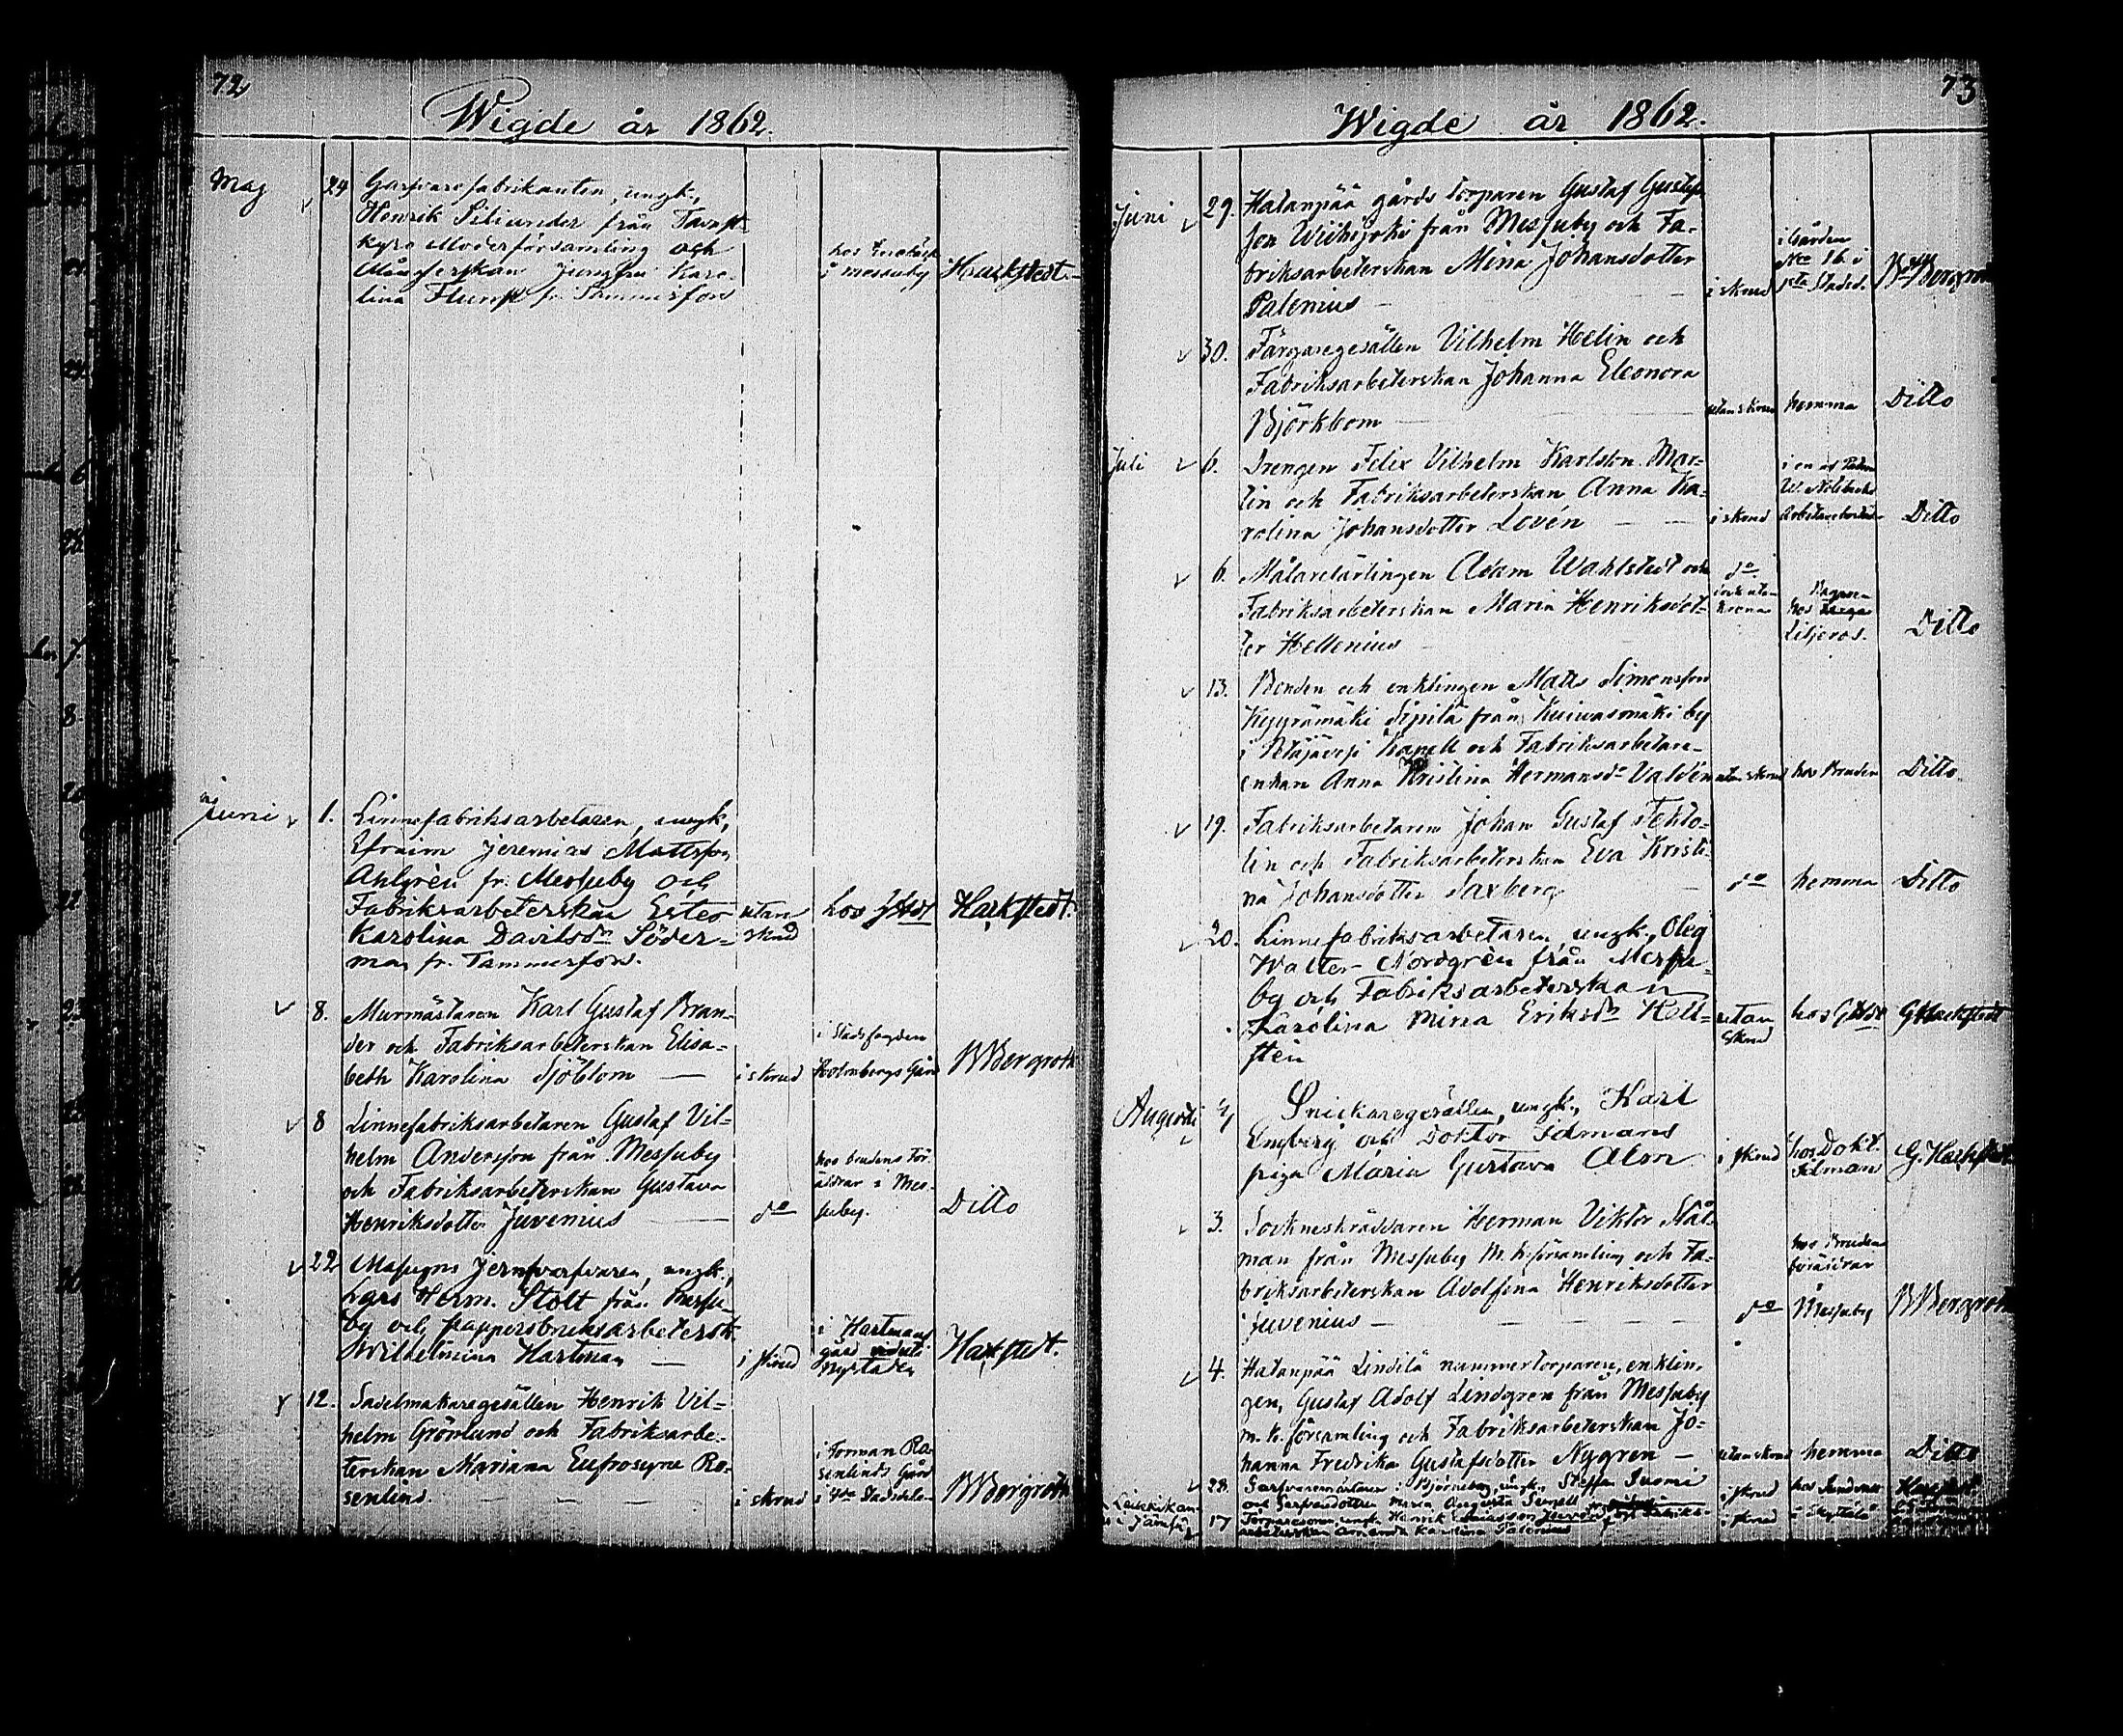 72
Wigde år 1862.
Maj 24 Garfvarefabrikanten, ungk.,
Henrik Siliander från Tavast-
kyro Moderförsamling och
Jungfru Karo-
lina fr. Tammerfors
i Messuby
Hackstedt.
Juni 1. Linnefabriksarbetaren, ungk,
Efraim Jeremias Mattsson
Ahlgrén fr. Messuby och
Fabriksarbeterskan Ester
Karolina Davidsdr Söder-
man fr. Tammerfors.
utan
skrud
hos
Hackstedt.
8. Murmästaren Karl Gustaf Bran-
der och Fabriksarbeterskan Elisa-
beth Karolina Sjöblom —
i skrud
i Stadsfogden
Holmbergs Gård
B Bergroth
8 Linnefabriksarbetaren Gustaf Vil-
helm Andersson från Messuby
och Fabriksarbeterskan Gustava
Henriksdotter Juvenius —
do
hos brudens För-
äldrar i Mes-
suby.
Ditto
22 Masugns Jernsvarfvaren, ungk.,
Lars Herm. Stolt från Messu-
by och pappersbruksarbetersk.
Wilhelmina Hartman —
i skrud
i Hartmans
gård
Nystaden
Hackstedt.
12. Sadelmakaregesällen Henrik Vil-
helm Grönlund och Fabriksarbe-
terskan Mariana Eufrosyne Ro-
senlind. — — —
i skrud
i Forman Ro-
senlinds Gård
i 4de Stadsdelen
B Bergroth
73
Wigde år 1862.
Juni 29. Hatanpää gårds torparen Gustaf Gustafs-
son Wiihijoki från Messuby och Fa-
briksarbeterskan Mina Johansdotter
Palenius —
i skrud
i Gården
No 16 i
1sta Stadsd.
B Bergroth
30. Färgaregesällen Vilhelm Helin och
Fabriksarbeterskan Johanna Eleonora
Björkbom —
utan skrud
hemma
Ditto
Juli 6. Drengen Felix Vilhelm Karlsson Mar-
lin och Fabriksarbeterskan Anna Ka-
rolina Johansdotter Lovén — —
i skrud
i en af
W. Notbecks
Arbetarebostäd.
Ditto
6. Målarelärlingen Adam Wahlstedt och
Fabriksarbeterskan Maria Henriksdot-
ter Hellenius —
do
och utan
krona
hos
Liljeros.
Ditto
13. Bonden och enklingen Matts Simonsson
Kyyrämäki Sipilä från Kuivasmäki by
i Petäjävesi Kapell och Fabriksarbetare-
enkan Anna Kristina Hermansdr Valdén
utan skrud
hos Bruden
Ditto.
19. Fabriksarbetaren Johan Gustaf Fekto-
lin och Fabriksarbeterskan Eva Kristi-
na Johansdotter Saxberg —
do
hemma
Ditto
20. Linnefabriksarbetaren, ungk., Oleg
Walter Nordgrén från Messu-
by och Fabriksarbeterskan
Karolina Mina Eriksdr Holl-
stén
utan
skrud
hos
G Hackstedt
Augusti Snickaregesällen, ungk., Karl
Engberg och Doktor Idmans
piga Maria Gustava Alm
i skrud
hos Dokt.
Idman
G. Hackstedt
3. Sockneskräddaren Herman Viktor Stål-
man från Messuby M. K. församling och Fa-
briksarbeterskan Adolfina Henriksdotter
Juvenius — — — —
do
hos Brudens
föräldrar
i
Messuby
B Bergroth
4. Hatanpää Lindilä nummertorparen, enklin-
gen, Gustaf Adolf Lindgren från Messuby
m. k. församling och Fabriksarbeterskan Jo-
hanna Fredrika Gustafsdotter Nygren —
utan skrud
hemma
Ditto
28. Garfvaremästaren i Björneborg, ungk. Staffan Suomi
och Garfvaredottren Maria Augusta
i skrud
hos
Hackstedt
17 Torparesonen, ungk. Henrik och Fabriks-
arbeterskan Amanda Karolina Palenius
i skrud